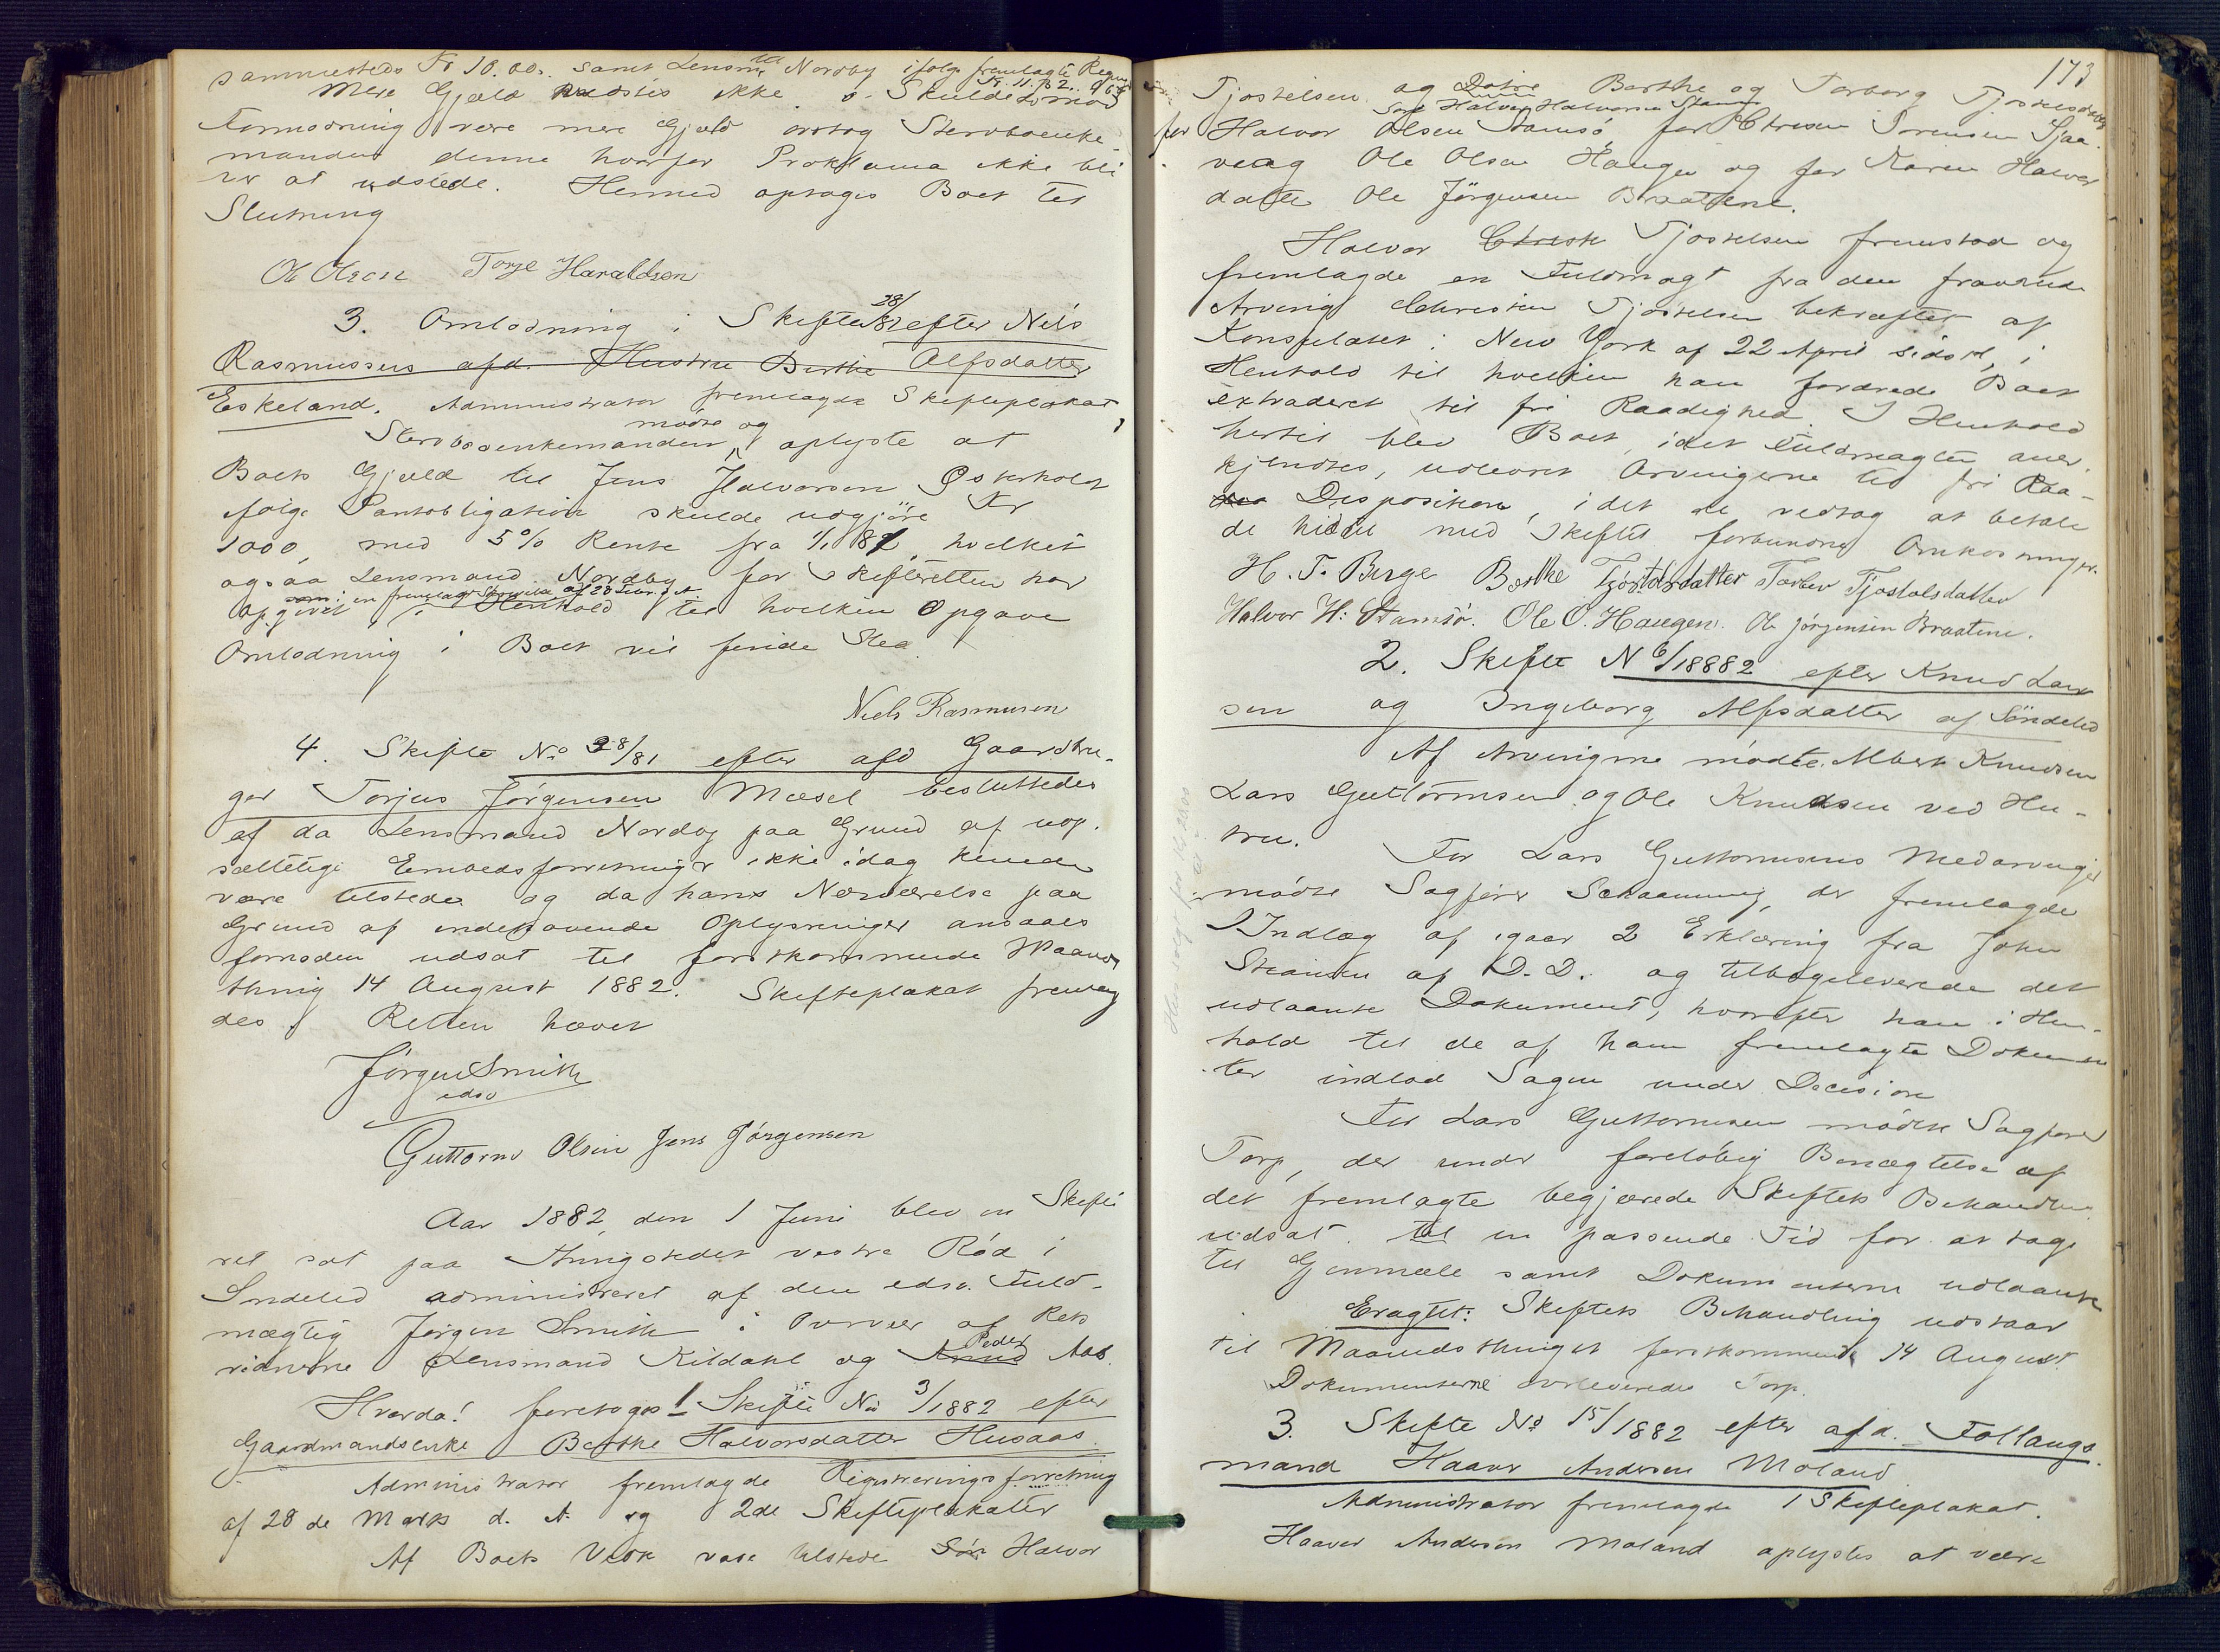 sammesteds Kr 10.00. samt Lensm til Nordby ifølge fremlagte Regn
Kr. 11.82.
Mere Gjæld vides ikke. Skulde mod
Formodning være mere Gjæld overtog Sterboenke-
manden denne hvorfor Proklama ikke bli
ver at udstede. Hermed optoges Boet til
Slutning
Ole Olsen Torje Haraldsen
3. Omlodning i Skifte 28/82 efter Nils
Rasmussens afd. Hustru Berthe Alfsdatter
Eskeland. Administrator fremlagde Skifteplakat
Sterboenkemanden mødte og oplyste at
Boets Gjæld til Jens Halvorsen Østerholt
følge Pantobligation skulde udgjöre Kr
1000, med 5% Rente fra 1/1 82, hvilket
ogsaa Lensmand Nordby for Skifteretten har
opgivet i en fremlagt Skrivelse af 28 Febr. d. A.
i Henhold til hvilken Opgave
Omlodning i Boet vil finde Sted
Niels Rasmusen
4. Skifte No 28/81 efter afd Gaardbru-
ger Torjus Jörgensen Mæsel besluttedes
af da Lensmand Nordby paa Grund af uop-
sættelige Embedsforretninger ikke idag kunde
være tilstede og da hans Nærværelse paa
Grund af indehavende Oplysninger ansaaes
fornöden udsat til förstkommende Maaneds
thing 14 August 1882. Skifteplakat fremlag
des. Retten hævet
Jörgen Smith
edsv
Guttorm Olsen Jens Jörgensen
Aar 1882 den 1 Juni blev en Skifte
ret sat paa Thingstedet vestre Röd i
Sndeled administreret af den edsv. Fuld-
mægtig Jørgen Smith i Overvær af Rets
vidnerne Lensmand Kildahl og Knud Peder Aas.
Hvorda! foretoges 1 Skifte No 3/1882 efter
Gaardmandsenke Berthe Halvorsdatter Husaas.
Administrator fremlagde Registreringsforretning
af 28 de Marts d. A. og 2de Skifteplakater
Af Boets Vedk vare tilstede Sön Halvor
173
Tjostelsen og Døtre Berthe og Torborg Tjostelsdatter
for Halvor Olsen Stamsö Sön Halvor Halvorsen Stamsö for Chresten Sörensen Sjaa-
vaag Ole Olsen Haugen og for Karen Halvors
datter Ole Jörgensen Braatene.
Halvor Christe Tjostelsen fremstod og
fremlagde en Fuldmagt fra den fraværende
Arving Christen Tjöstelsen bekræftet af
Konsulatet i New York af 22 April sidstl, i
Henhold til hvilken han fordrede Boet
extraderet til fri Raadighed. I Henhold
hertil blev Boet, idet Fuldmagten aner-
kjendtes, udleveret Arvingerne til fri Raa-
Disposition, idet de vedtog at betale
de hidtil med Skiftet forbundne Omkostninger.
H. T. Berge Berthe Tjostolsdatter Torbor Tjostolsdatter
Halvor H: Stamsö. Ole O. Haugen. Ole Jörgensen Braatene.
2. Skifte N 6/18882 efter Knud Lar
sen og Ingeborg Alfsdatter af Söndeled
Af Arvingerne mødte Albert Knudsen
Lars Guttormsen og Ole Knudsen ved Hu-
tru. For Lars Guttormsens Medarvinger
mødte Sagförer Schaanning, der fremlagde
1 Indlæg af igaar 2 Erklæring fra John
Steansen af D. D. og tilbageleverede det
udlaante Dokument, hvorefter han i Hen-
hold til de af ham fremlagte Dokumen
ter indlod Sagen under Decision
For Lars Guttormsen mødte Sagförer
Torp, der under foreløbig Benægtelse af
det fremlagte begjærede Skiftets Behandling
udsat til en passende Tid for at tage
til Gjenmæle samt Dokumenterne udlaante
Eragtet: Skiftets Behandling udstaar
til Maanedsthinget førstkommende 14 August
Dokumenterne overleveredes Torp.
3. Skifte No 15/1882 efter afd. Follaugs
mand Haaver Andersen Moland
Administrator fremlagde 1 Skifteplakat.
Haaver Andersen Moland oplystes at være